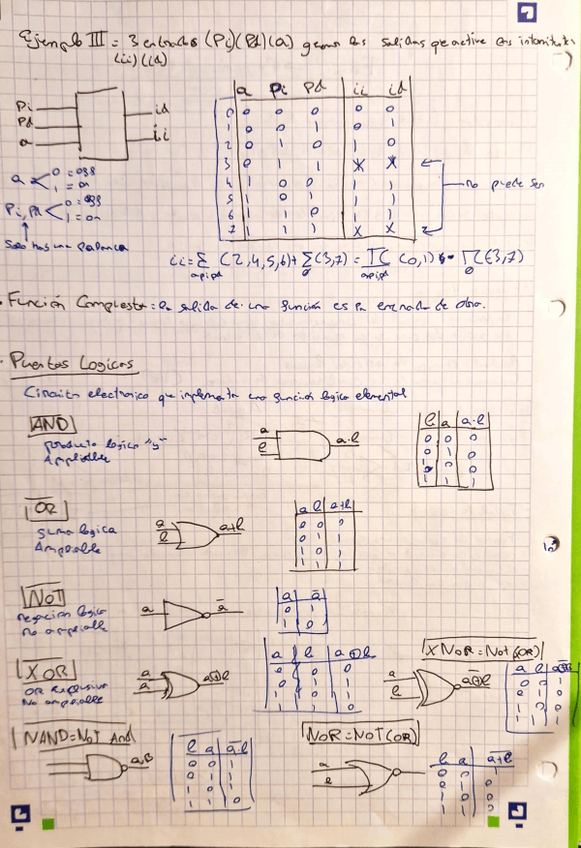 Ejemplo III = 3 entradas (Pi)(Pd)(a) las salidas que active
(ii)(id)
a Pi Pd ii id
0 0 0 0 0 0
1 0 0 1 0 1
2 0 1 0 1 0
3 0 1 1 X X
4 1 0 0 1 1
5 1 0 1 1 1
6 1 1 0 1 1
7 1 1 1 X X
no puede ser
Pi
Pd
a
id
ii
a < 0 = off
1 = on
Pi, Pd < 0 = off
1 = on
palanca
ii = Σ (2,4,5,6) + Σ (3,7) = π (0,1) π (3,7)
a pi pd ø a pi pd ø
Función Compuesta: la salida de una función es la entrada de otra.
Puertas Logicas
Circuito electronico que implementa una función logica elemental
AND
producto logico "y"
Ampliable
a
b
a·b
b a a·b
0 0 0
0 1 0
1 0 0
1 1 1
OR
suma logica
Ampliable
a
b
a+b
a b a+b
0 0 0
0 1 1
1 0 1
1 1 1
NOT
negación logica
No ampliable
a
ā
a ā
0 1
1 0
XOR
OR exclusiva
No ampliable
a
a
a⊕b
a b a⊕b
0 0 0
0 1 1
1 0 1
1 1 0
XNOR = Not (OR)
a
b
a⊕b
a b a⊕b
0 0 1
0 1 0
1 0 0
1 1 1
NAND = NoT And
a,B
b a a·b
0 0 1
0 1 1
1 0 1
1 1 0
NOR = NOT (OR)
a
b
b a a+b
0 0 1
0 1 0
1 0 0
1 1 0